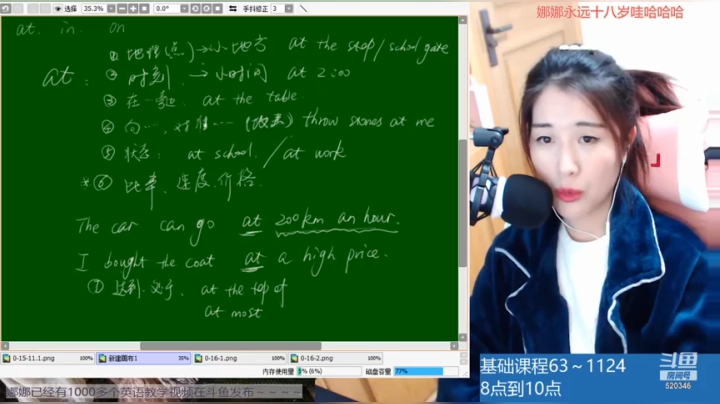 选择 35.3% 0.0° 手抖修正 3
娜娜永远十八岁哇哈哈哈
at. in. on
① 地理(点)→小地方 at the stop/school gate
at: ② 时刻. →小时间 at 2:00
③ 在…旁边. at the table.
④ 向…, 对准… ( ) throw stones at me
⑤ 状态: at school. / at work
*⑥ 比率、速度、价格.
The car can go at 200km an hour.
I bought the coat at a high price.
⑦ 达到. 处于. at the top of
at most
0-15-11.1.png 100% 新建画布1 35% 0-16-1.png 100% 0-16-2.png 100%
内存使用量 5% (6%) 磁盘容量 77%
基础课程63～1124
8点到10点
斗鱼
房间号
520346
娜娜已经有1000多个英语教学视频在斗鱼发布～～～～